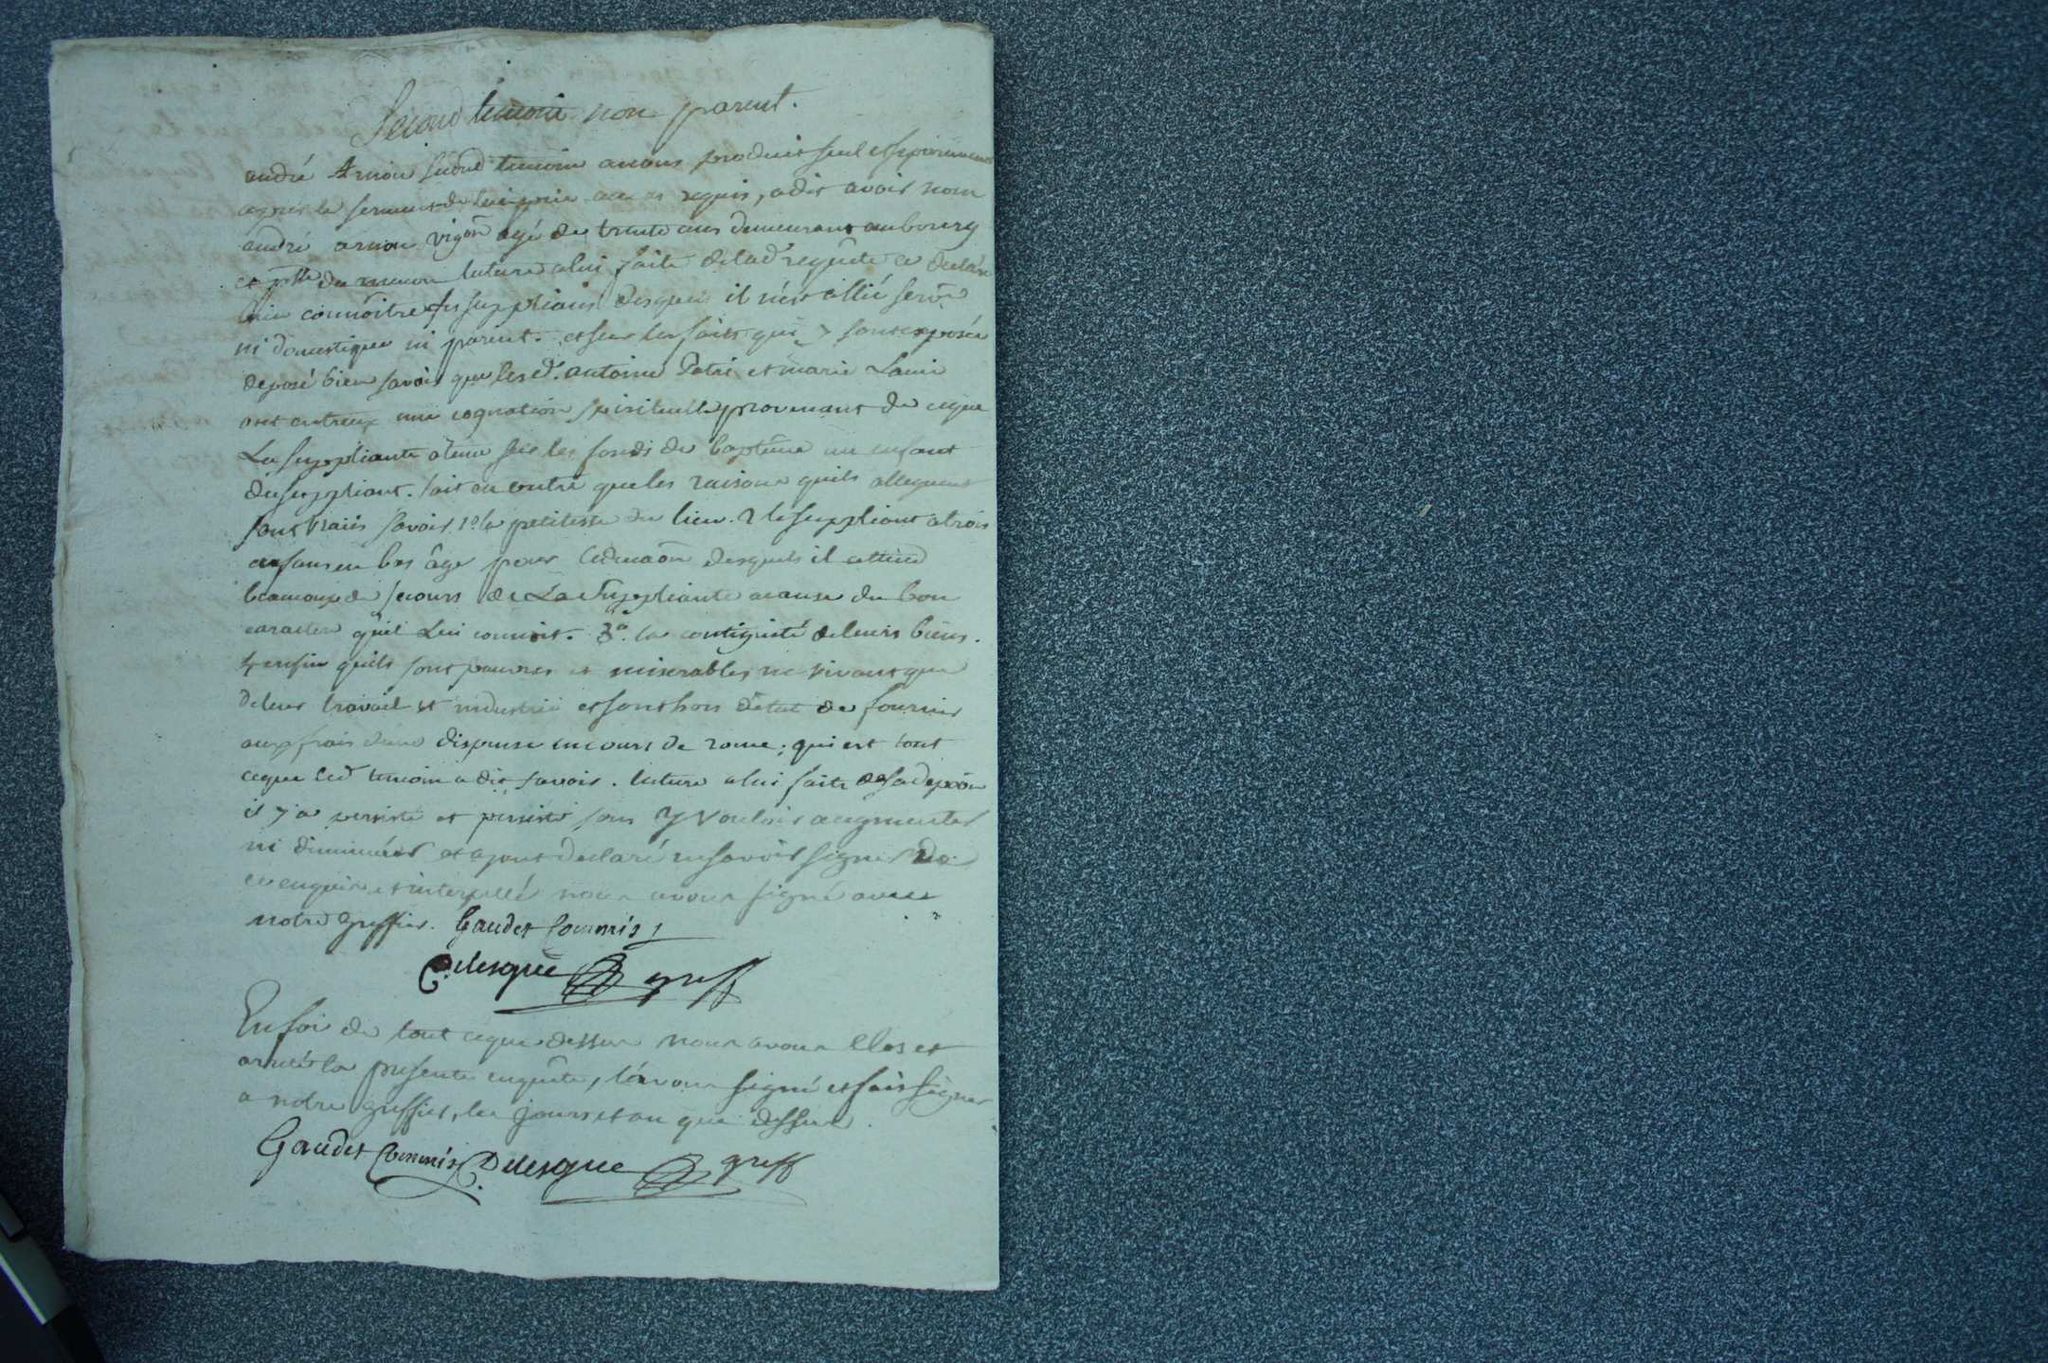 Second temoin non parent.
andré Arnou second temoin a nous produit seul et separement
apres le serment de lui pris au cas requis, a dit avoir nom
andré arnou vigon agé de trente ans demeurant au bourg
et plle de lecture a lui faite de lad requête a declaré
bien connoître les supplians desquels il n'est allié serv.r
ni domestique ni parent. et sur les faits qui y sont exposés
deposé bien savoir que lesd. antoine Petri et marie
ont entreux une cognation spirituelle provenant de ceque
La suppliante a tenu sur les fonds de baptême un enfant
du suppliant. sait en outre que les raisons quils alleguent
sont vraiës savoir 1º la petitesse du lieu. 2 le suppliant a trois
enfans en bas âge pour leducaõn desquels il attend
beaucoup de secours de La Suppliante a cause du bon
caractere qu'il Lui connoit. 3º. la contiguité de leurs biens.
4 enfin quils sont pauvres et miserables ne vivant que
de leur travail et industrie et sont hors d'état de fournir
aux frais d'une dispense en cours de rome; qui est tout
ceque led temoin a dit savoir. lecture a lui faite de sa depoõn
il y a persisté et persiste sans y vouloir augmenter
ni diminuer et ayant declaré ne savoir signer De
ce enquis et interpellé nous avons signé avec
notre greffier. Gaudet Commis
Delesque greff
En foi de tout ceque dessus nous avons Clos et
arrêté la presente enquête, l'avons signé et fait signer
a notre greffier, les jours et an que dessus.
Gaudet Commis Delesque greff